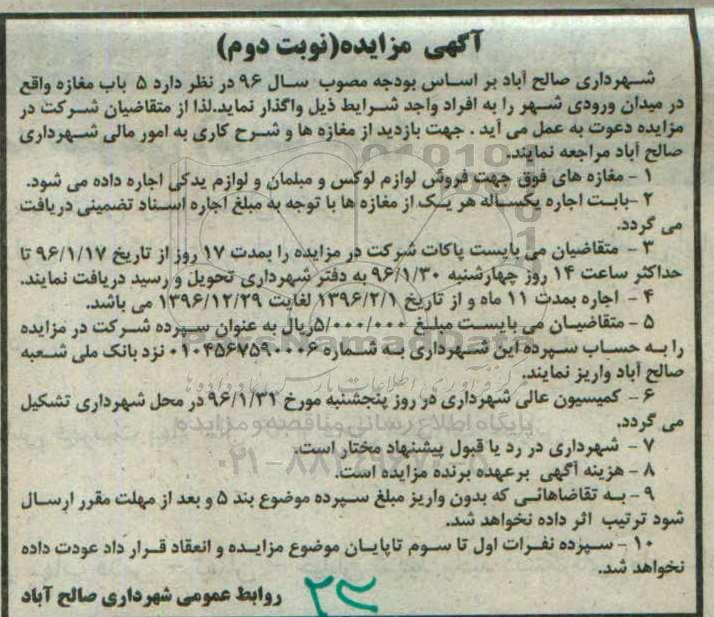 آگهی مزایده(نوبت دوم)
شهرداری صالح آباد بر اساس بودجه مصوب سال ۹۶ در نظر دارد ۵ باب مغازه واقع
در میدان ورودی شهر را به افراد واجد شرایط ذیل واگذار نماید.لذا از متقاضیان شرکت در
مزایده دعوت به عمل می آید . جهت بازدید از مغازه ها و شرح کاری به امور مالی شهرداری
صالح آباد مراجعه نمایند.
۱ - مغازه های فوق جهت فروش لوازم لوکس و مبلمان و لوازم یدکی اجاره داده می شود.
۲ -بابت اجاره یکساله هر یک از مغازه ها با توجه به مبلغ اجاره اسناد تضمینی دریافت
می گردد.
۳ - متقاضیان می بایست پاکات شرکت در مزایده را بمدت ۱۷ روز از تاریخ ۹۶/۱/۱۷ تا
حداکثر ساعت ۱۴ روز چهارشنبه ۹۶/۱/۳۰ به دفتر شهرداری تحویل و رسید دریافت نمایند.
۴ - اجاره بمدت ۱۱ ماه و از تاریخ ۱۳۹۶/۲/۱ لغایت ۱۳۹۶/۱۲/۲۹ می باشد.
۵ - متقاضیان می بایست مبلغ ۵/۰۰۰/۰۰۰ریال به عنوان سپرده شرکت در مزایده
را به حساب سپرده این شهرداری به شماره ۰۱۰۴۵۶۷۵۹۰۰۰۶ نزد بانک ملی شعبه
صالح آباد واریز نمایند.
۶ - کمیسیون عالی شهرداری در روز پنجشنبه مورخ ۹۶/۱/۳۱ در محل شهرداری تشکیل
می گردد.
۷ - شهرداری در رد یا قبول پیشنهاد مختار است.
۸ - هزینه آگهی برعهده برنده مزایده است.
۹ - به تقاضاهائی که بدون واریز مبلغ سپرده موضوع بند ۵ و بعد از مهلت مقرر ارسال
شود ترتیب اثر داده نخواهد شد.
۱۰ - سپرده نفرات اول تا سوم تاپایان موضوع مزایده و انعقاد قرار داد عودت داده
نخواهد شد.
روابط عمومی شهرداری صالح آباد